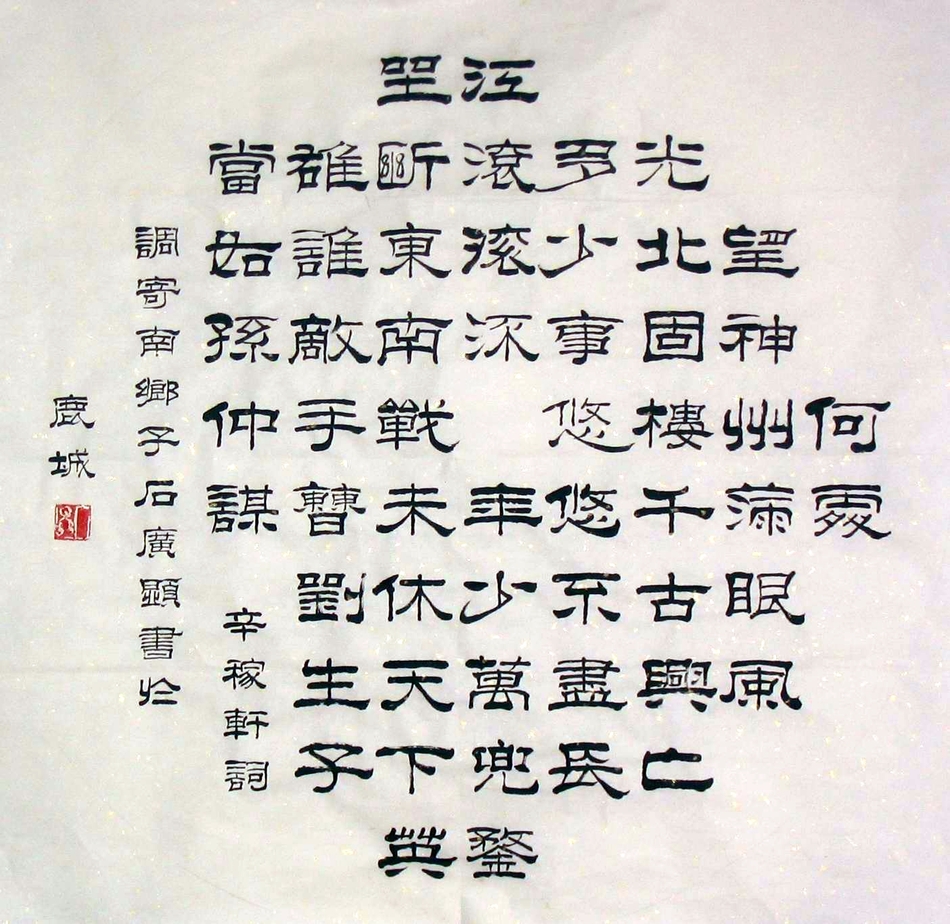 何處
望神州滿眼風
光北固樓千古興亡
多少事悠悠不盡長
江滾滾流 年少萬兜鍪
坐斷東南戰未休天下英
雄誰敵手曹劉生子
當如孫仲謀 辛稼軒詞
調寄南鄉子石廣顯書於
鹿城